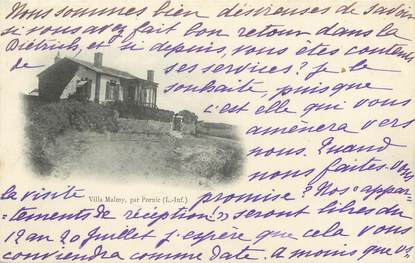 Nous sommes bien désireuses de savoir
si vous avez fait bon retour dans la
Diétrich, et si depuis, vous êtes contents
de ses services? Je le
souhaite, puisque
c'est elle qui vous
amènera vers
nous. Quand
nous faites-vous
la visite promise? Nos "appar-
-tements de réception" seront libres du
12 au 20 Juillet j'espère que cela vous
conviendra comme date. A moins que v
Villa Malmy, par Pornic (L.-Inf.)